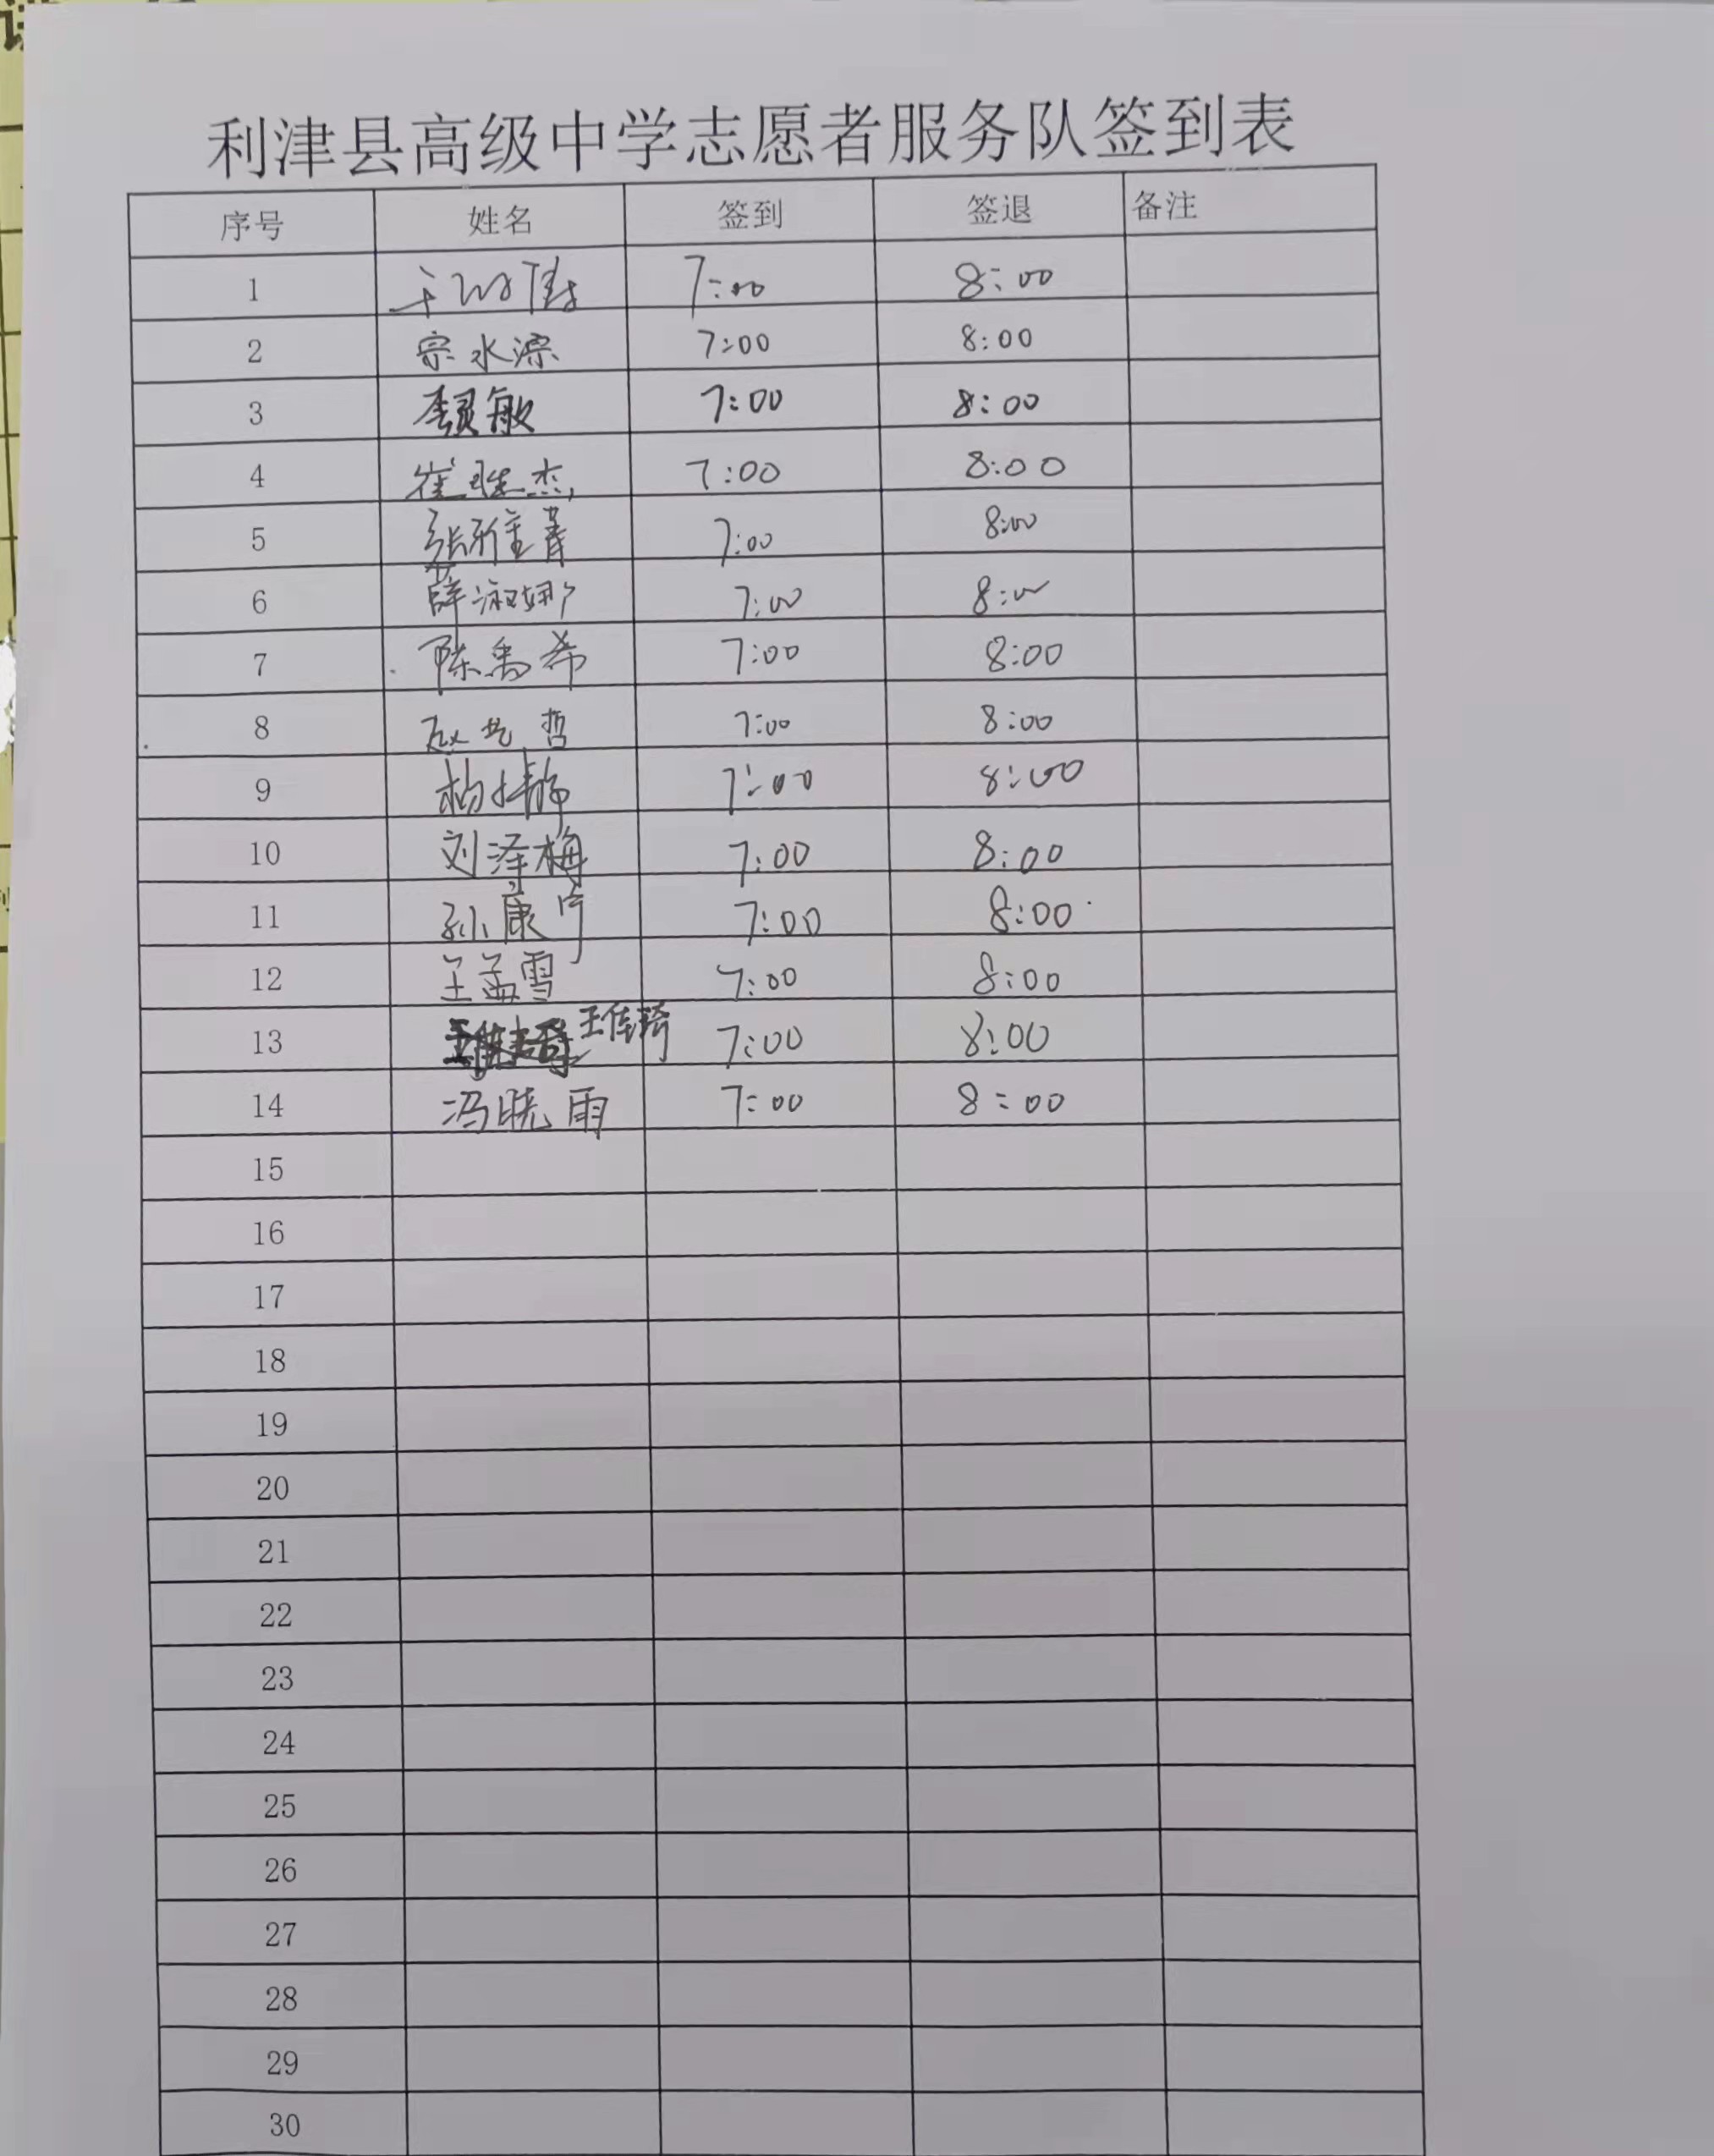 利津县高级中学志愿者服务队签到表
序号 姓名 签到 签退 备注
1 7:00 8:00
2 宗水源 7:00 8:00
3 敏 7:00 8:00
4 崔 杰 7:00 8:00
5 张雅菁 7:00 8:00
6 薛淑娜 7:00 8:00
7 陈禹希 7:00 8:00
8 赵艺哲 7:00 8:00
9 杨婧 7:00 8:00
10 刘泽梅 7:00 8:00
11 孙康宁 7:00 8:00
12 王孟雪 7:00 8:00
13 王佳琦 7:00 8:00
14 冯晓雨 7:00 8:00
15
16
17
18
19
20
21
22
23
24
25
26
27
28
29
30